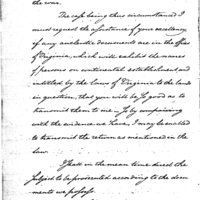 the war.
The case being thus circumstanced I
must request the assistance of your excellency
if any authentic documents are in the office
of Virginia, which will exhibit the names
of persons on continental establishment and
entitled by the laws of Virginia to the lands
in question, that you will be so good as to
transmit them to me, so by comparing
with the evidence we have, I may be enabled
to transmit the return as mentioned in the
law.
I shall in the mean time direct the
subject to be prosecuted according to the docu
ments we possess.